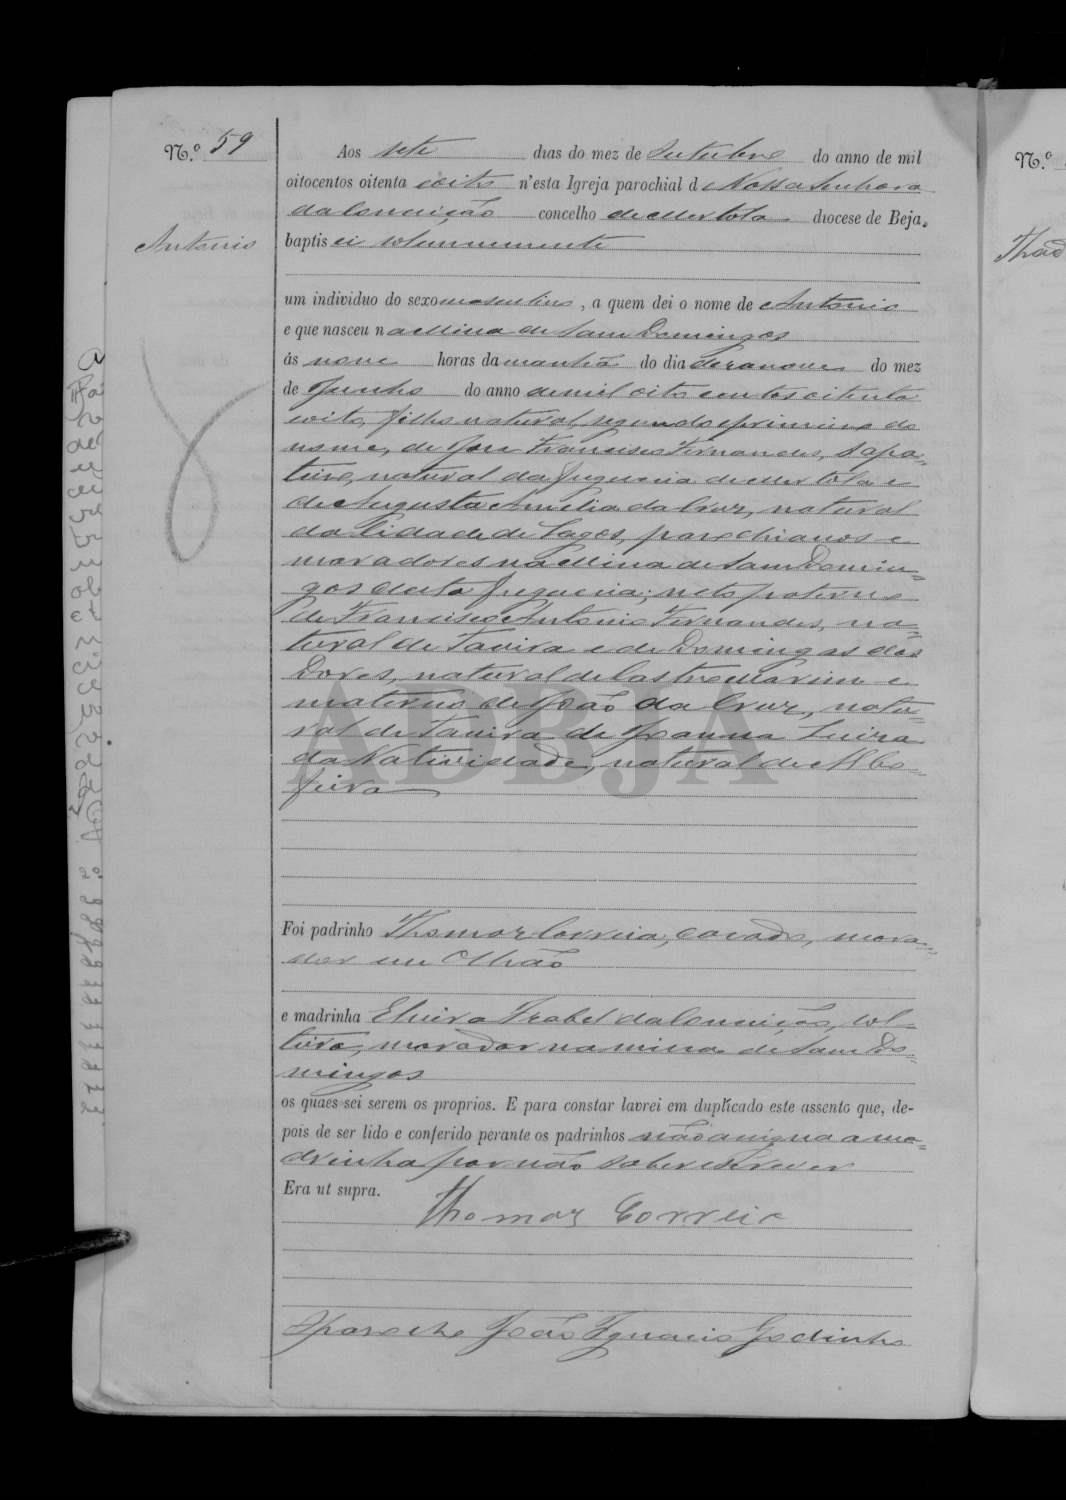 N.º 59
Aos sete dias do mez de Outubro do anno de mil
oitocentos oitenta e oito n'esta Igreja parochial de Nossa Senhora
da Conceição concelho de Mertola diocese de Beja.
Antonio
baptisei solemnemente
um individuo do sexo masculino, a quem dei o nome de Antonio
e que nasceu na Mina de Sam Domingos
ás nove horas da manhã do dia dezanove do mez
de Junho do anno de mil oito centos oitenta
e oito, filho natural, segundo e primeiro do
nome, de José Francisco Fernandes, sapa-
teiro, natural da freguezia de Mertola e
de Augusta Amelia da Cruz, natural
da Cidade de Lagos, parochianos e
moradores na Mina de Sam Domin-
gos desta freguezia; neto paterno
de Francisco Antonio Fernandes, na-
tural de Tavira e de Domingas das
Dores, natural de Castro Marim e
materno de João da Cruz, natu-
ral de Tavira de Joanna Luiza
da Natividade, natural de Albo-
feira
ADBJA
Foi padrinho Thomaz Correia, cazado, mora-
dor em Olhão
e madrinha Elvira Izabel da Conceição, sol-
teira, morador na mina de Sam Do-
mingos
os quaes sei serem os proprios. E para constar lavrei em duplicado este assento que, de-
pois de ser lido e conferido perante os padrinhos não assigna a ma-
drinha por não saber escrever
Era ut supra.
Thomaz Correia
O parocho João Ignacio Godinho
N.º